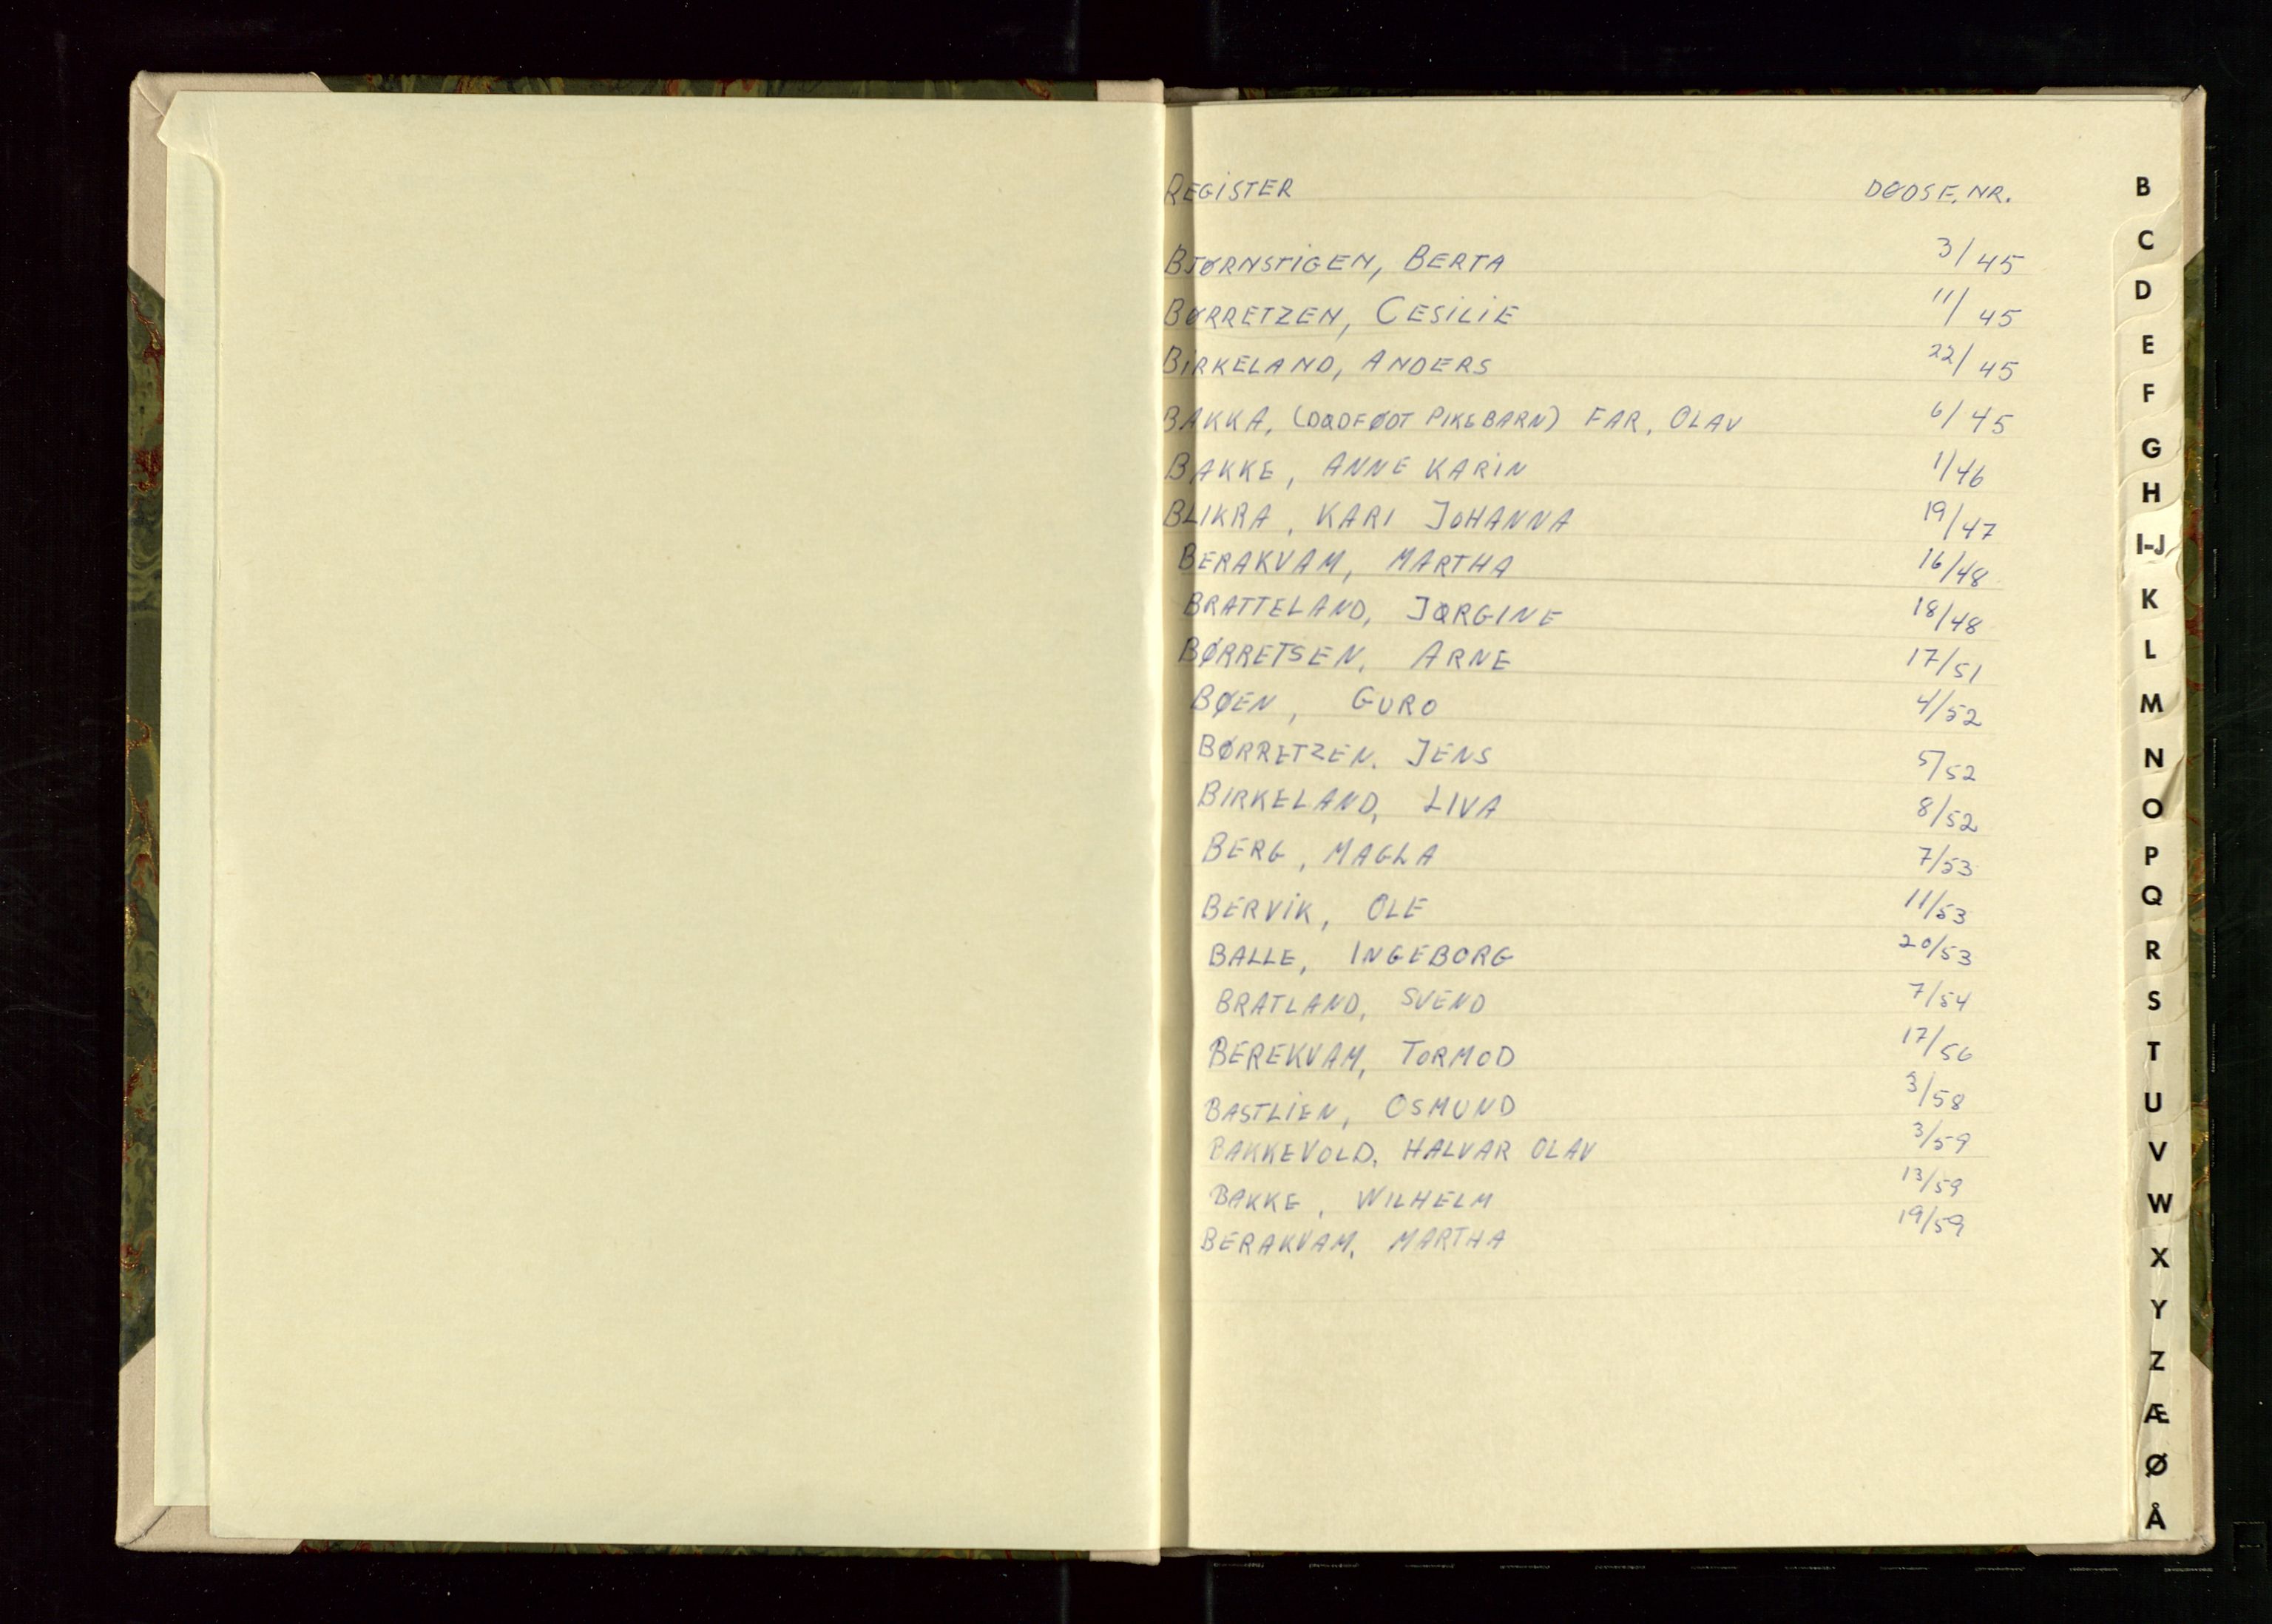 REGISTER DØDSF. NR.
BJØRNSTIGEN, BERTA 3/45
BØRRETZEN, CESILIE 11/45
BIRKELAND, ANDERS 22/45
BAKKA, (DØDFØDT PIKEBARN) FAR, OLAV 6/45
BAKKE, ANNE KARIN 1/46
BLIKRA, KARI JOHANNA 19/47
BERAKVAM, MARTHA 16/48
BRATTELAND, JØRGINE 18/48
BØRRETSEN, ARNE 17/51
BØEN, GURO 4/52
BØRRETZEN. JENS 5/52
BIRKELAND, LIVA 8/52
BERG, MAGLA 7/53
BERVIK, OLE 11/53
BALLE, INGEBORG 20/53
BRATLAND, SVEND 7/54
BEREKVAM, TORMOD 17/56
BASTLIEN, OSMUND 3/58
BAKKEVOLD, HALVAR OLAV 3/59
BAKKE, WILHELM 13/59
BERAKVAM, MARTHA 19/59
B
C
D
E
F
G
H
I-J
K
L
M
N
O
P
Q
R
S
T
U
V
W
X
Y
Z
Æ
Ø
Å